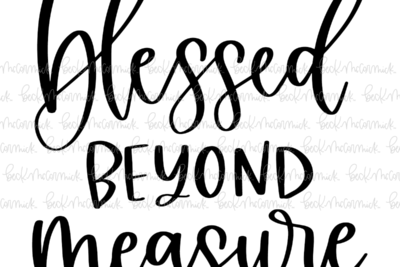 blessed
BEYOND
measure